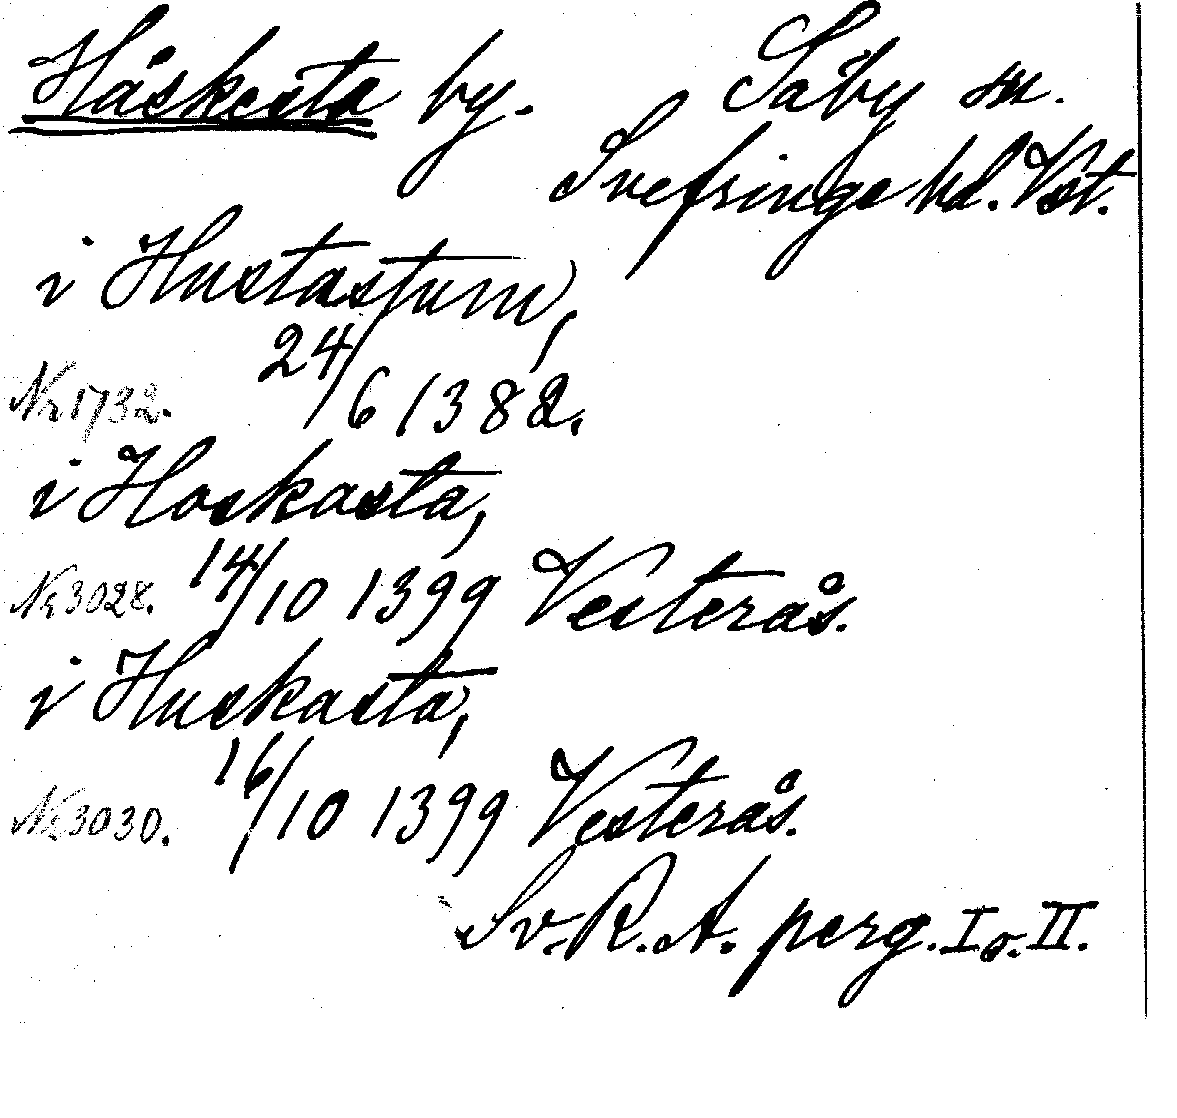 Håskesta by.
Säby sn.
Snefringe hd. Vst.
i Hustastum,
Nr 1732. 24/6 1382.
i Hoskasta,
Nr 3028. 14/10 1399 Vesterås.
i Huskasta,
Nr 3030. 16/10 1399 Vesterås.
Sv. R. A. perg. I o. II.